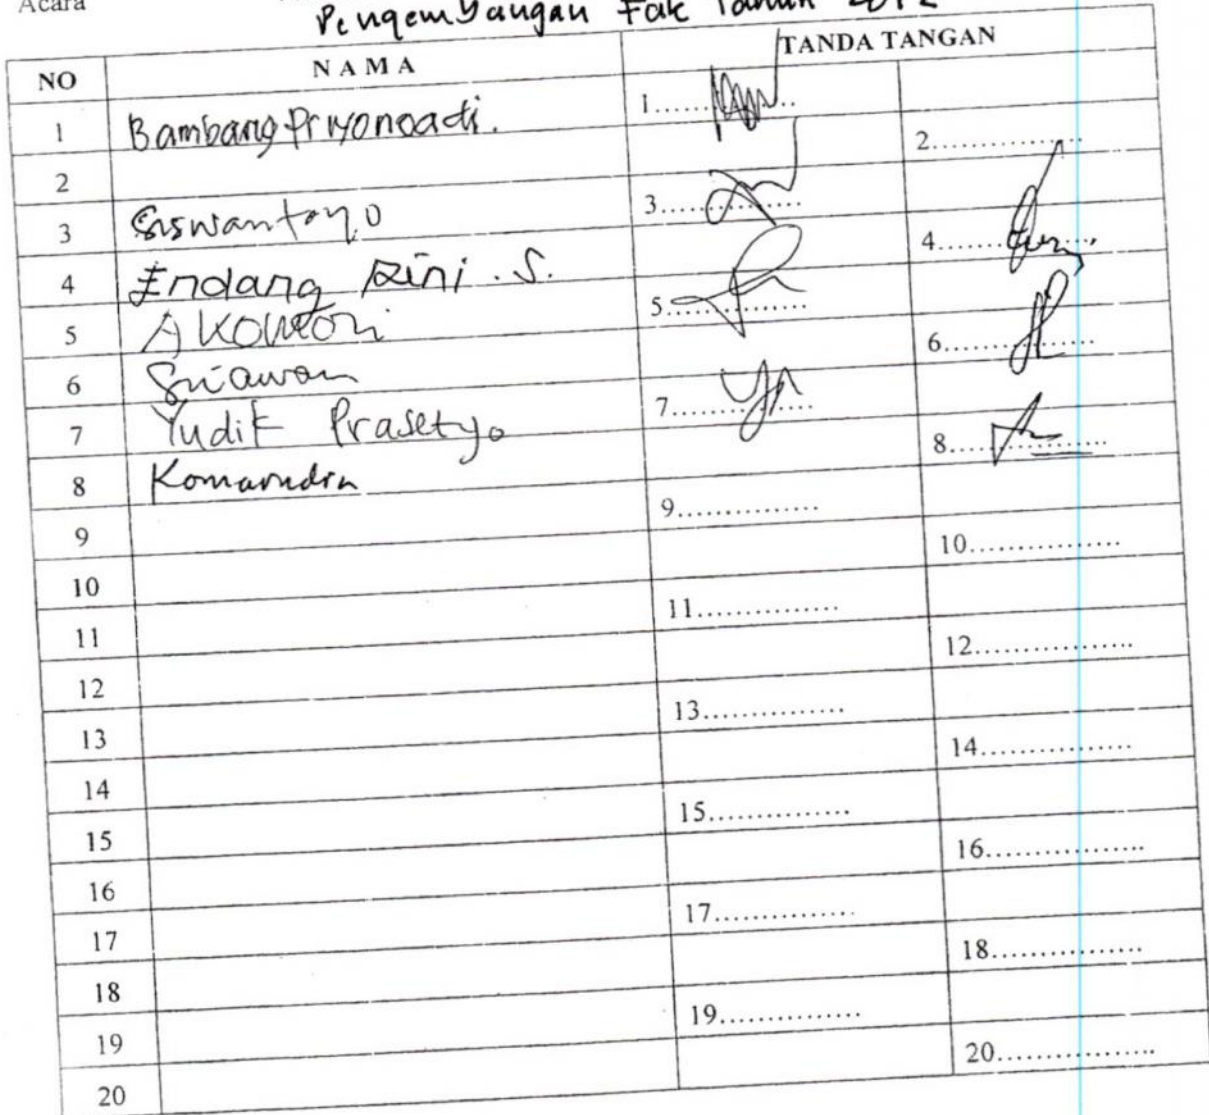 Acara
Pengembangan Fak Tahun 2012
NO NAMA TANDA TANGAN
1 Bambang Priyonoadi. 1...............
2 2...............
3 Siswantoyo 3...............
4 Endang Rini . S. 4...............
5 A Komari 5...............
6 Sriawan 6...............
7 Yudik Prasetyo 7...............
8 Komarudin 8...............
9 9...............
10 10...............
11 11...............
12 12...............
13 13...............
14 14...............
15 15...............
16 16...............
17 17...............
18 18...............
19 19...............
20 20...............